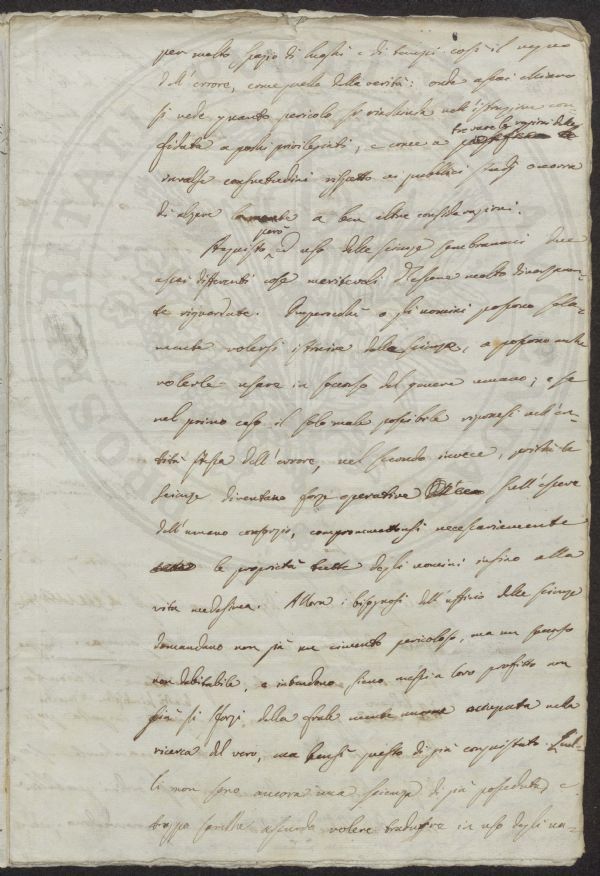 per molto spazio di luoghi e di tempi così il regno
dell'errore, come quello della verità: onde assai chiaro
si vede quanto pericolo si rinchiuda nell'istruzione con-
fidata a pochi privilegiati, e come a
trovare le ragioni delle
invalse consuetudini rispetto ai pubblici studj occorra
di alzare la mente a ben altre considerazioni.
però
Acquisto ed uso delle scienze sembranmi due
assai differenti cose meritevoli d'essere molto diversamen-
te riguardate. Imperocchè o gli uomini possono sola-
mente volersi istruire delle scienze, o possono anche
volerle usare in soccorso del genere umano; e se
nel primo caso il solo male possibile riponesi nell'en-
tità stessa dell'errore, nel secondo invece, poichè le
scienze diventano forze operative sull'essere
dell'umano consorzio, compromettonsi necessariamente
le proprietà tutte degli uomini infino alla
vita medesima. Allora i bisognosi dell'ufficio delle scienze
domandano non già un cimento pericoloso, ma un soccorso
non dubitabile, e intendono sieno messi a loro profitto non
già gli sforzi della frale mente umana occupata nella
ricerca del vero, ma bensì questo di già conquistato. Quel-
li non sono ancora una scienza di già posseduta, e
troppo sarebbe assurdo volere tradurre in uso degli uo-